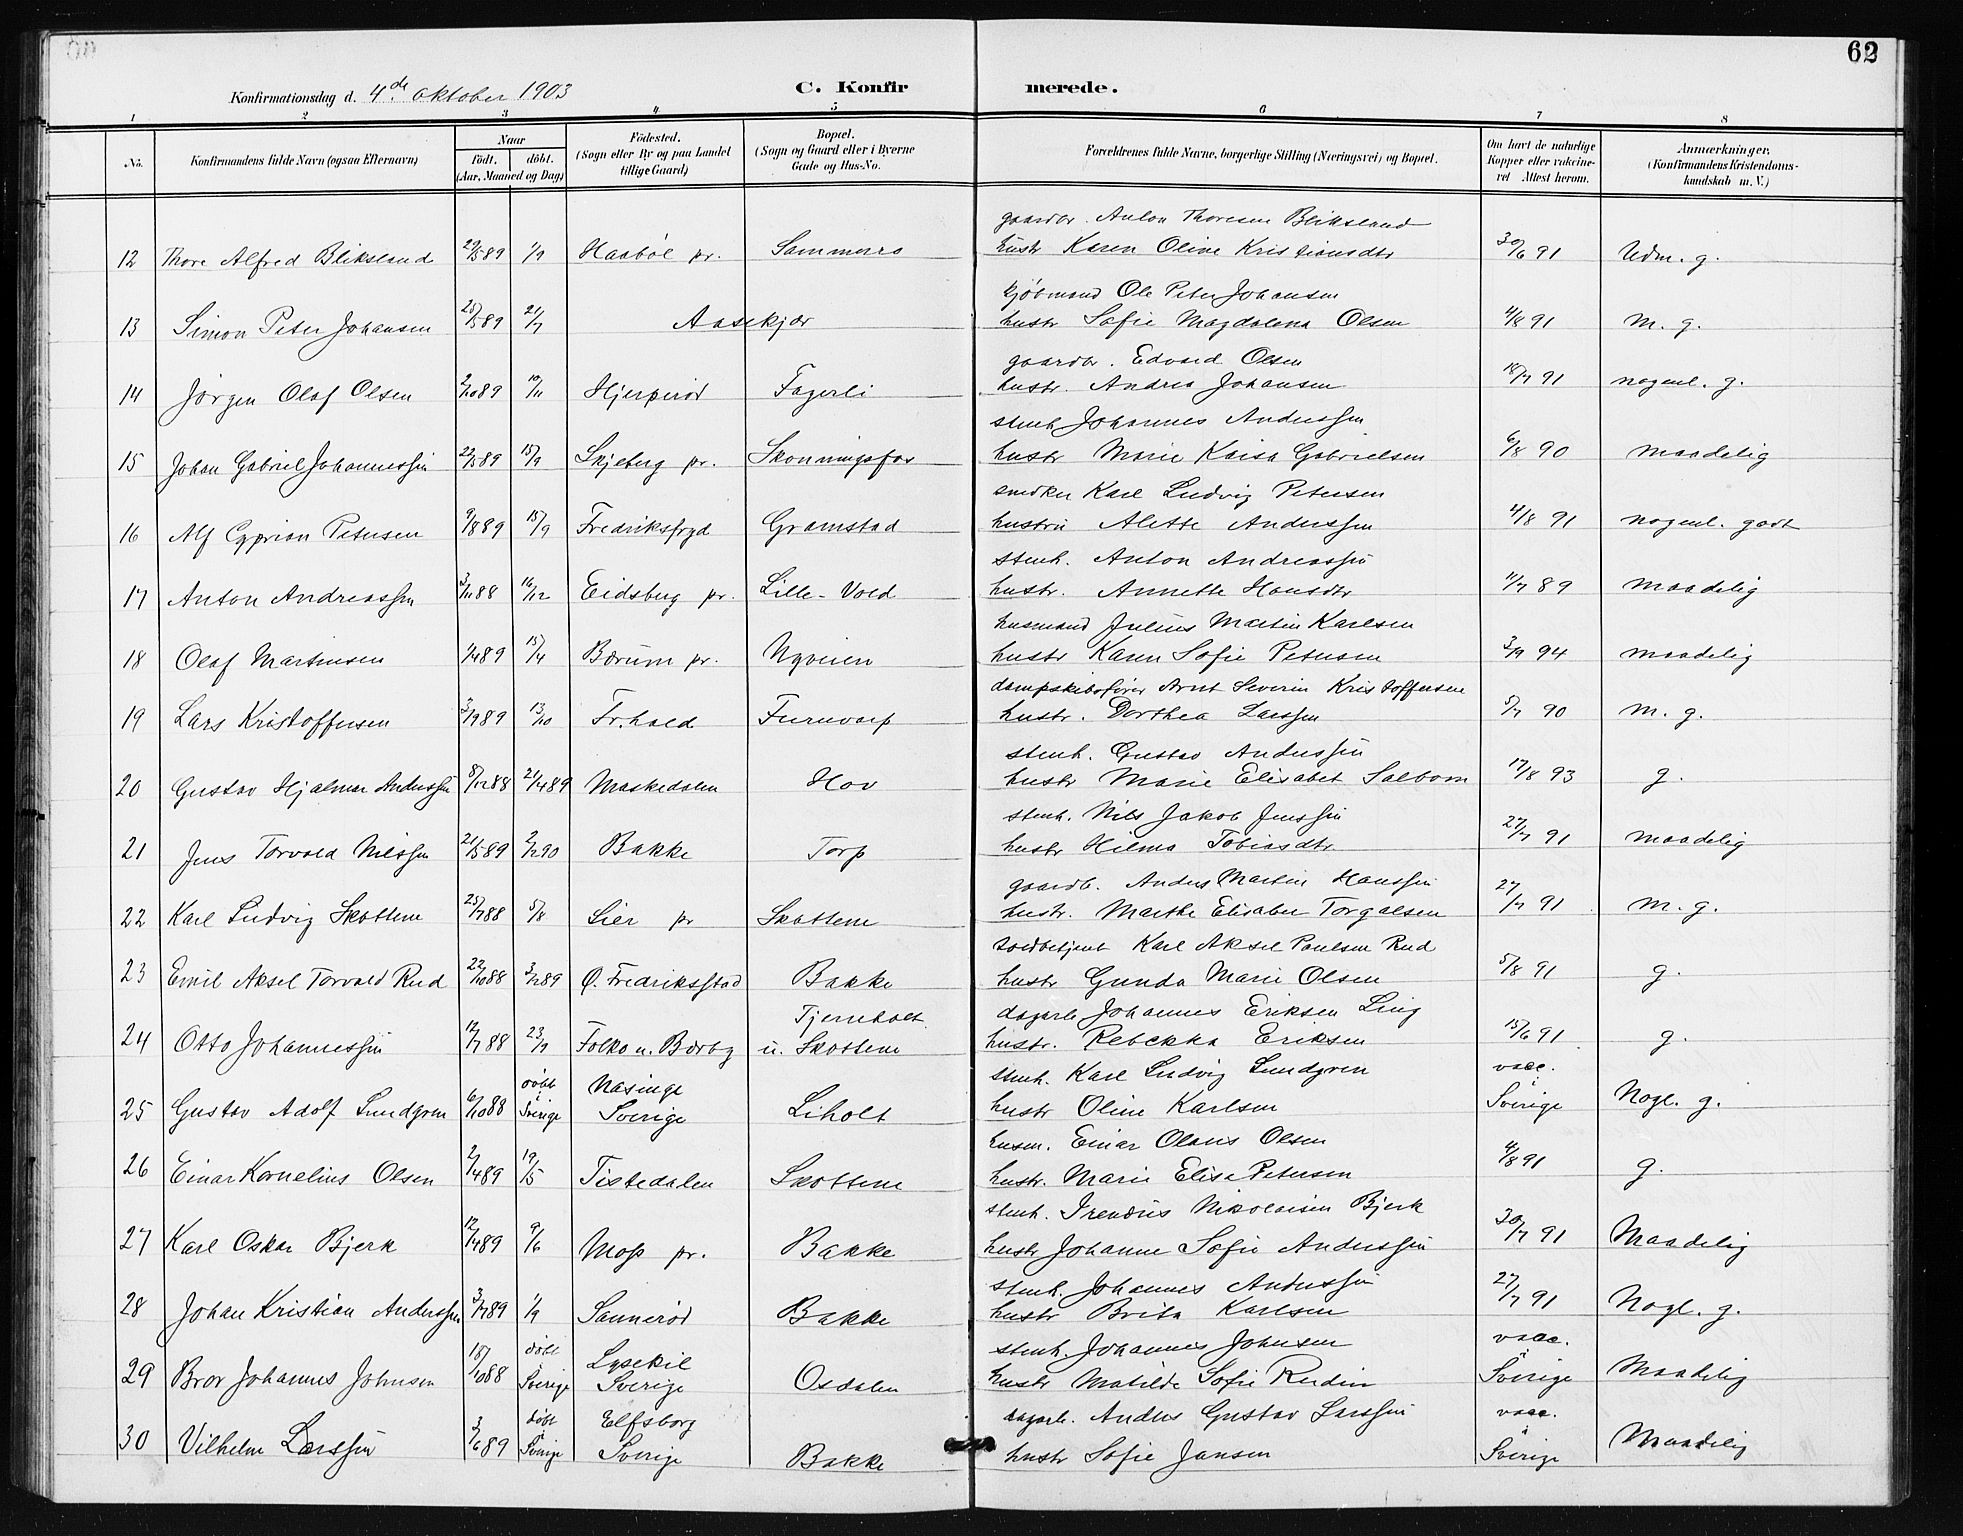 62
Konfirmationsdag d. 4de oktober 1903
C. Konfirmerede.
1 2 3 4 5 6 7 8
No. Konfirmandens fulde Navn (ogsaa Efternavn) Naar födt. döbt. (Aar, Maaned og Dag) Födested. (Sogn eller By og paa Landet tillige Gaard) Bopæl. (Sogn og Gaard eller i Byerne Gade og Hus-No. Forældrenes fulde Navne, borgerlige Stilling (Næringsvei) og Bopæl. Om havt de naturlige Kopper eller vaccineret Attest herom. Anmærkninger. (Konfirmandens Kristendomskundskab m. V.)
gaardbr. Anton Thoresen Bliksland
12 Thore Alfred Bliksland 29/5 89 1/9 Haabøl pr. Sommerro hustr Karen Oline Kristiansdtr 30/6 91 Udm. g.
kjøbmand Ole Peter Johansen
13 Simon Peter Johansen 28/5 89 21/7 Aasekjær hustr Sofie Magdalena Olsen 4/8 91 M. g.
gaardbr. Edvard Olsen
14 Jørgen Olaf Olsen 2/10 89 10/11 Hjerperød Fagerli hustr. Andrea Johansen 18/7 91 nogenl. g.
stenh Johannes Anderssen
15 Johan Gabriel Johannessen 22/5 89 15/9 Skjeberg pr. Skonningsfos hustr Marie Kaisa Gabrielsen 6/8 90 maadelig
snedker Karl Ludvig Petersen
16 Alf Cyprian Petersen 9/8 89 15/9 Fredriksfryd Gramstad hustru Alette Anderssen 4/8 91 nogenl. godt
stenh. Anton Andreassen
17 Anton Andreassen 3/11 88 16/12 Eidsberg pr. Lille-Vold hustr. Annette Hansdtr 11/7 89 maadelig
husmand Julius Martin Karlsen
18 Olaf Martinsen 1/4 89 15/4 Bærum pr. Nyveien hustr Karen Sofie Petersen 3/9 94 maadelig
dampskibsfører Arnt Severin Kristoffersen
19 Lars Kristoffersen 3/9 89 13/10 Fr.hald Furuvarp hustr. Dorthea Larssen 5/7 90 M. g.
stenh. Gustav Anderssen
20 Gustav Hjalmar Anderssen 8/12 88 21/4 89 Maskedalen Hov hustr Marie Elisabet Salbom 17/8 93 g.
stenh. Nils Jakob Jenssen
21 Jens Torvald Nilssen 21/5 89 2/2 90 Bakke Torp hustr Hilma Tobiasdtr. 27/7 91 maadelig
gaardb. Anders Martin Hanssen
22 Karl Ludvig Skottene 25/7 88 5/8 Lier pr Skottene hustr. Marthe Elisabet Torgalsen 27/7 91 M. g.
toldbetjent Karl Aksel Paulsen Rud
23 Emil Aksel Torvald Rud 22/10 88 3/2 89 Ø. Fredriksstad Bakke hustr Gunda Marie Olsen 5/8 91 g.
Tjerneholt dagarb Johannes Eriksen Ling
24 Otto Johannessen 12/7 88 23/9 Folko n. Bærby u. Skottene hustr. Rebekka Eriksen 15/6 91 g.
døbt Nasinge stenh. Karl Ludvig Lundgren vacc.
25 Gustav Adolf Lundgren 6/10 88 Sverige Sverige Liholt hustr Oline Karlsen Sverige Nogl. g.
husm. Einar Olaus Olsen
26 Einar Kornelius Olsen 2/4 89 19/5 Tistedalen Skottene hustr. Marie Elise Petersen 4/8 91 g.
stenh. Irenæus Nikolaisen Bjerk
27 Karl Oskar Bjerk 12/4 89 9/6 Moss pr. Bakke hustr Johanne Sofie Anderssen 30/7 91 Maadelig
stenh. Johannes Anderssen
28 Johan Kristian Anderssen 3/7 89 1/9 Sannerød Bakke hustr Brita Karlsen 27/7 91 Nogl. g.
døbt Lysekil stenh. Johannes Johnsen vacc.
29 Bror Johannes Johnsen 18/10 88 Sverige Sverige Osdalen hustr Matilde Sofie Rudin Sverige Maadelig
døbt Elfsborg dagarb. Anders Gustav Larssen vacc.
30 Vilhelm Larssen 3/6 89 Sverige Sverige Bakke hustr Sofie Jansen Sverige Maadelig